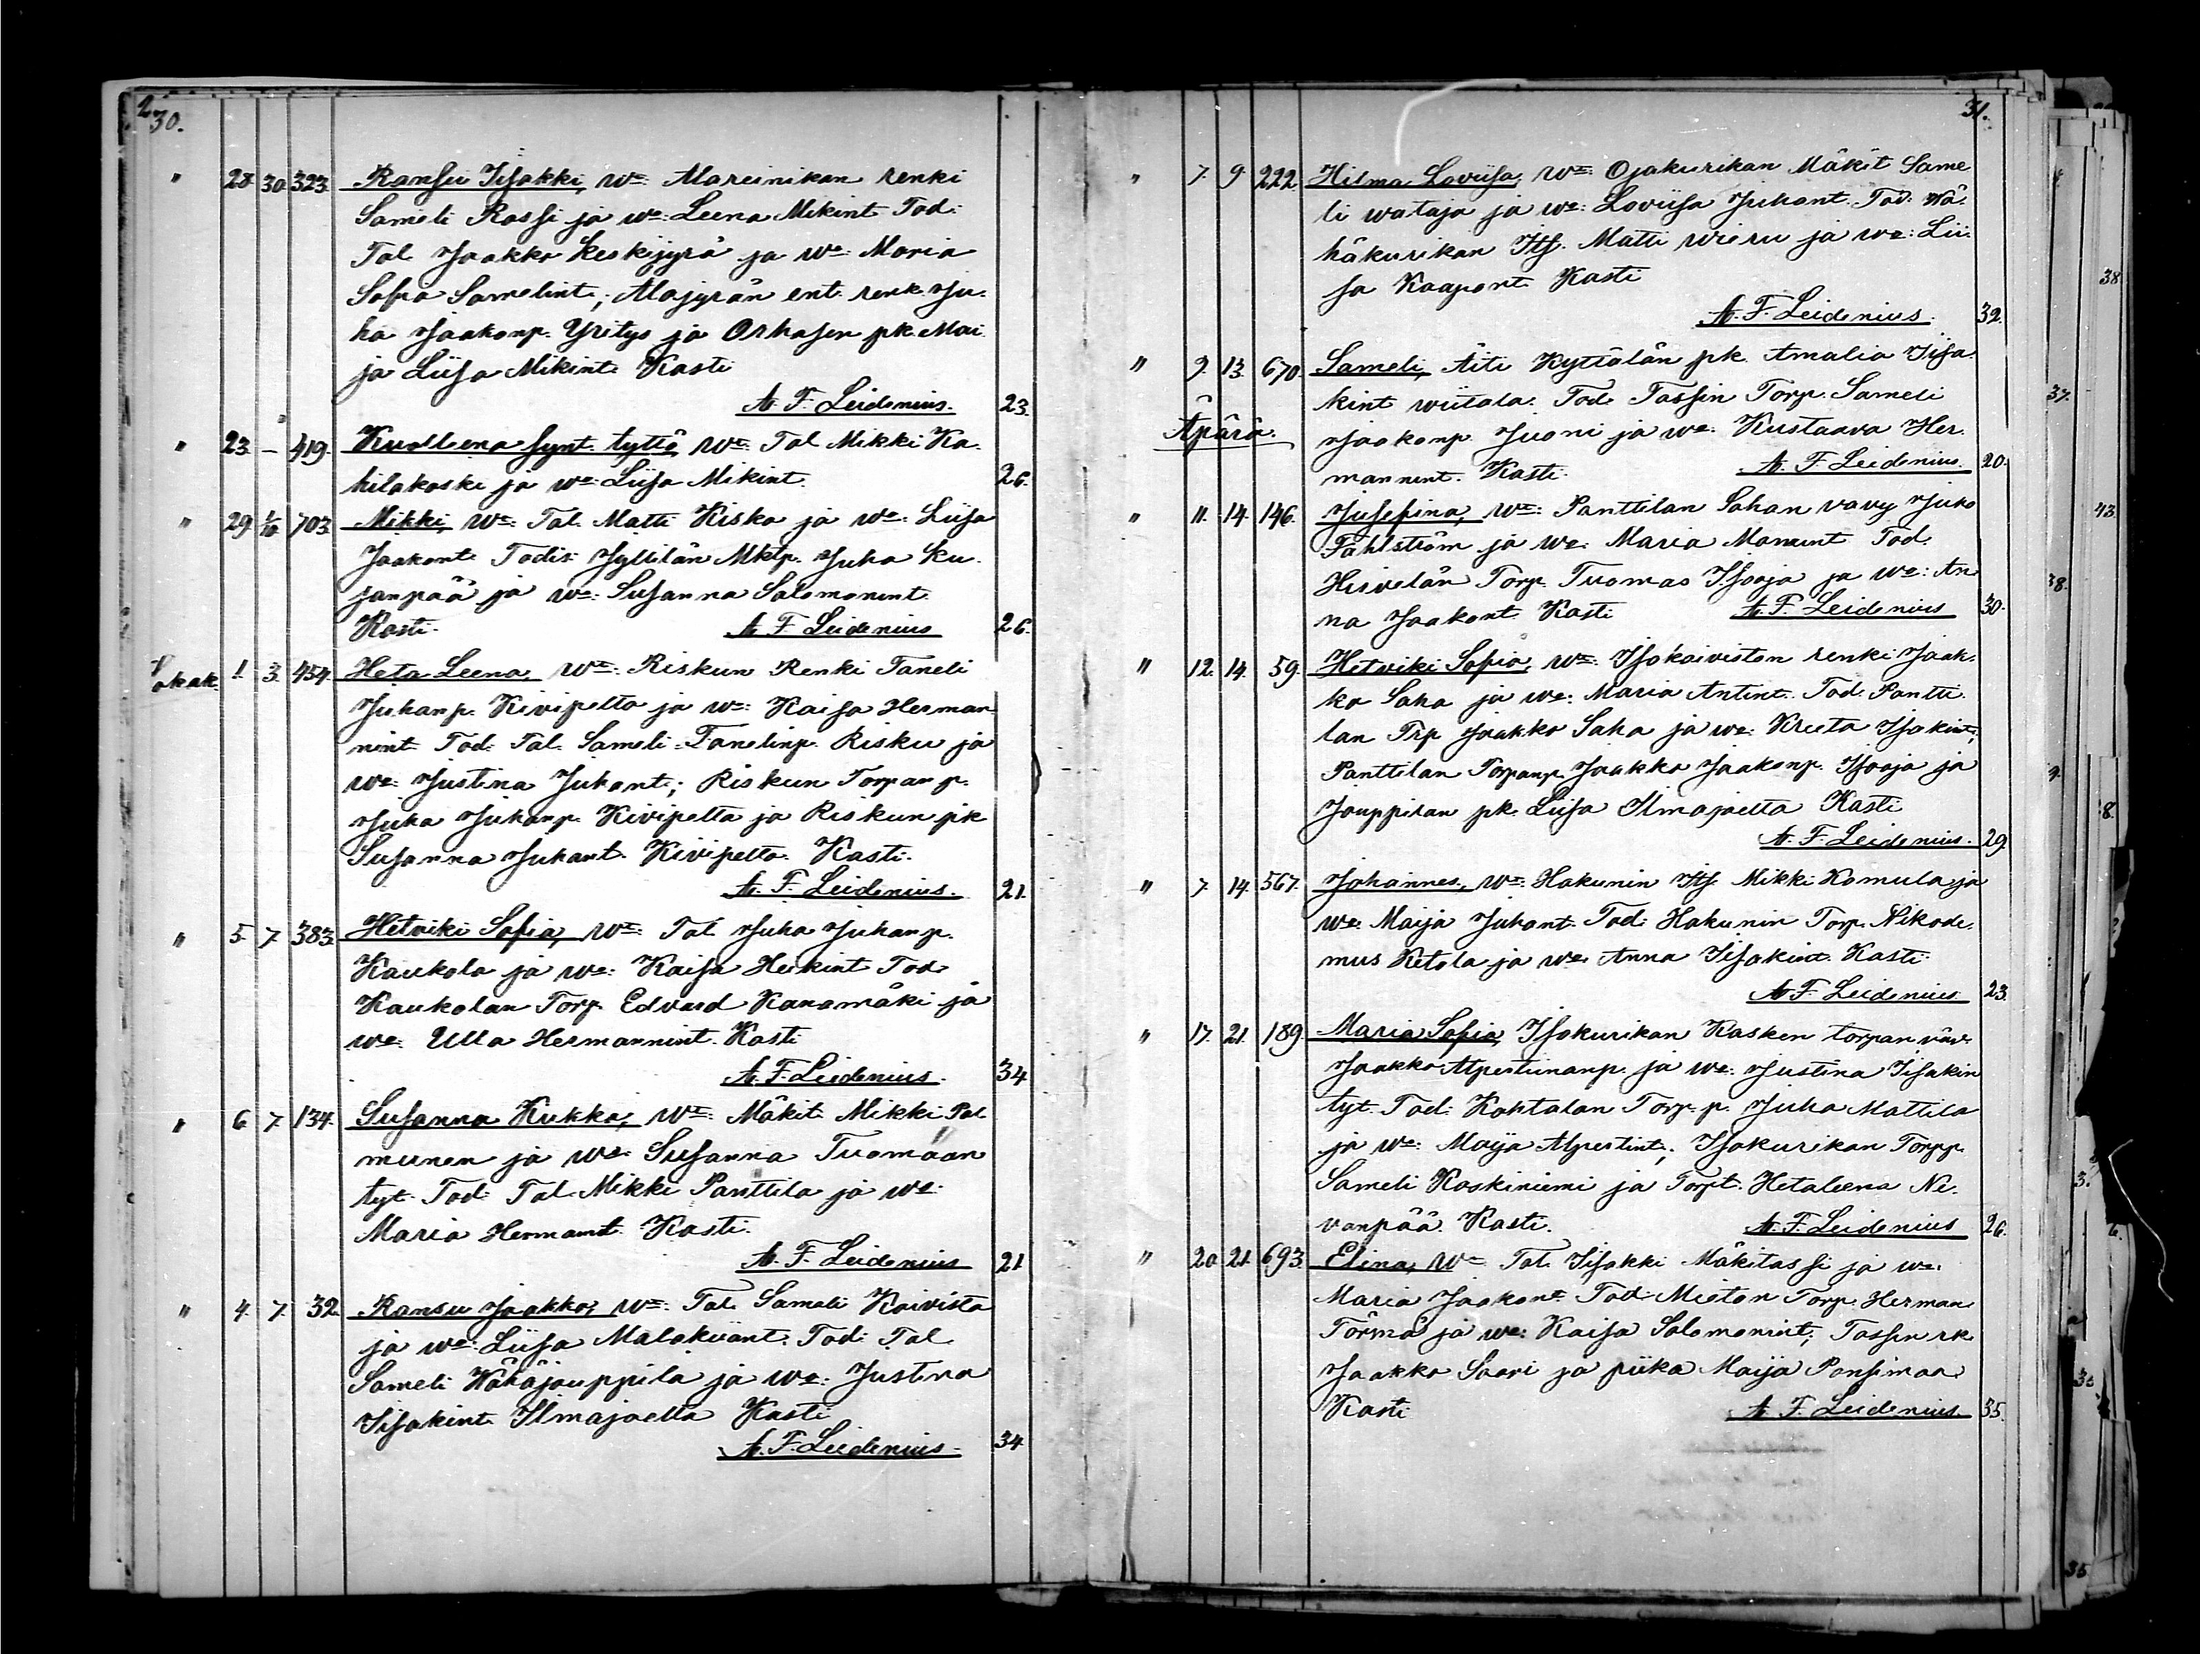 30.
" 28 30 323. Ransu Iisakki, Wn: Mareinikan renki
Sameli Rossi ja wo: Leena Mikint Tod:
Tal. Jaakko Keskijyrä ja Wo Maria
Sofia Samelint; Alajyrän ent. renk. Ju-
ha Jaakonp. Yritys ja Orhasen pk. Mai
ja Liisa Mikint. Kasti
A. F. Leidenius. 23.
" 23. – 419. Kuolleena synt. tyttö, Wn: Tal Mikki Ka-
hilakoski ja wo: Liisa Mikint. 26.
" 29 1/10 703. Mikki, Wn: Tal. Matti Kisko ja wo: Liisa
Jaakont. Todis: Jyllilän Mktp. Juha Ku-
janpää ja wo: Susanna Salomonint.
Kasti. A. F. Leidenius 26.
Lokak. 1. 3. 454. Heta Leena, Wn: Riskun Renki Taneli
Juhanp. Kivipelto ja wo: Kaisa Herman-
nint Tod: Tal. Sameli Tanelinp. Risku ja
wo: Justina Juhont; Riskun Torpan p.
Juha Juhanp. Kivipelto ja Riskun pk
Susanna Juhant. Kivipelto. Kasti.
A. F. Leidenius. 21.
" 5. 7. 383. Hetviki Sofia, Wn: Tal Juha Juhanp.
Kaukola ja wo: Kaisa Heikint Tod:
Kaukolan Torp. Edvard Kanamäki ja
wo: Ulla Hermannint. Kasti
A. F. Leidenius. 34
" 6 7. 134. Susanna Kukka, Wn: Mäkit. Mikki Pal
munen ja wo: Susanna Tuomaan
tyt. Tod: Tal. Mikki Panttila ja wo:
Maria Hermant. Kasti.
A. F. Leidenius 21
" 4. 7. 32 Ransu Jaakko, Wn: Tal. Sameli Koivisto
ja wo: Liisa Malakiant. Tod: Tal
Sameli Wähäjouppila ja wo: Justina
Iisakint. Ilmajoelta Kasti
A. F. Leidenius. 34
31.
" 7. 9. 222. Hilma Loviisa, Wn: Ojakurikan Mäkit Same
li Wataja ja wo: Loviisa Juhont. Tod: Wä-
häkurikan Its. Matti Wieru ja wo: Lii-
sa Kaapont. Kasti
A. F. Leidenius. 32.
" 9. 13. 670. Sameli, Äiti Kyttälän pk. Amalia Iisa-
kint Wiitala. Tod: Tassin Torp. Sameli
Äpärä. Jaakonp. Juoni ja wo: Kustaava Her-
mannint. Kasti. A. F. Leidenius. 20.
" 11. 14. 146. Jusefina, Wn: Panttilan Sahan vävy Juho
Fahlström ja wo: Maria Manunt Tod:
Hisvelän Torp. Tuomas Isooja ja wo: An
na Jaakont Kasti A. F. Leidenius 30.
" 12. 14. 59. Hetviki Sofia, Wn: Isokoiviston renki Jaak-
ko Saha ja wo: Maria Antint. Tod: Pantti-
lan Trp Jaakko Saha ja wo: Kreeta Isakint;
Panttilan Torpanp. Jaakko Jaakonp. Isooja ja
Jouppilan pk. Liisa Ilmajoelta Kasti
A. F. Leidenius. 29.
" 7. 14. 567. Johannes, Wn: Hakunin Its Mikki Komula ja
wo: Maija Juhont. Tod: Hakunin Torp. Nikode-
mus Ketola ja wo: Anna Iisakint. Kasti
A. F. Leidenius 23.
" 17. 21. 189. Maria Sofia, Isokurikan Kasken torpan väv.
Jaakko Alpertinanp. ja wo: Justina Iisakin
tyt. Tod: Kohtalan Torp. p. Juha Mattila
ja wo: Maija Alpertint; Isokurikan Torpp.
Sameli Koskiniemi ja Torpt. Hetaleena Ne-
vanpää Kasti. A. F. Leidenius 26.
" 20. 21. 693. Elina, Wn Tal. Iisakki Mäkitassi ja wo:
Maria Jaakont Tod: Mieton Torp. Herman
Törmä ja wo: Kaisa Salomonint; Tassin rk
Jaakko Saari ja piika Maija Ponsimaa
Kasti A. F. Leidenius. 35.